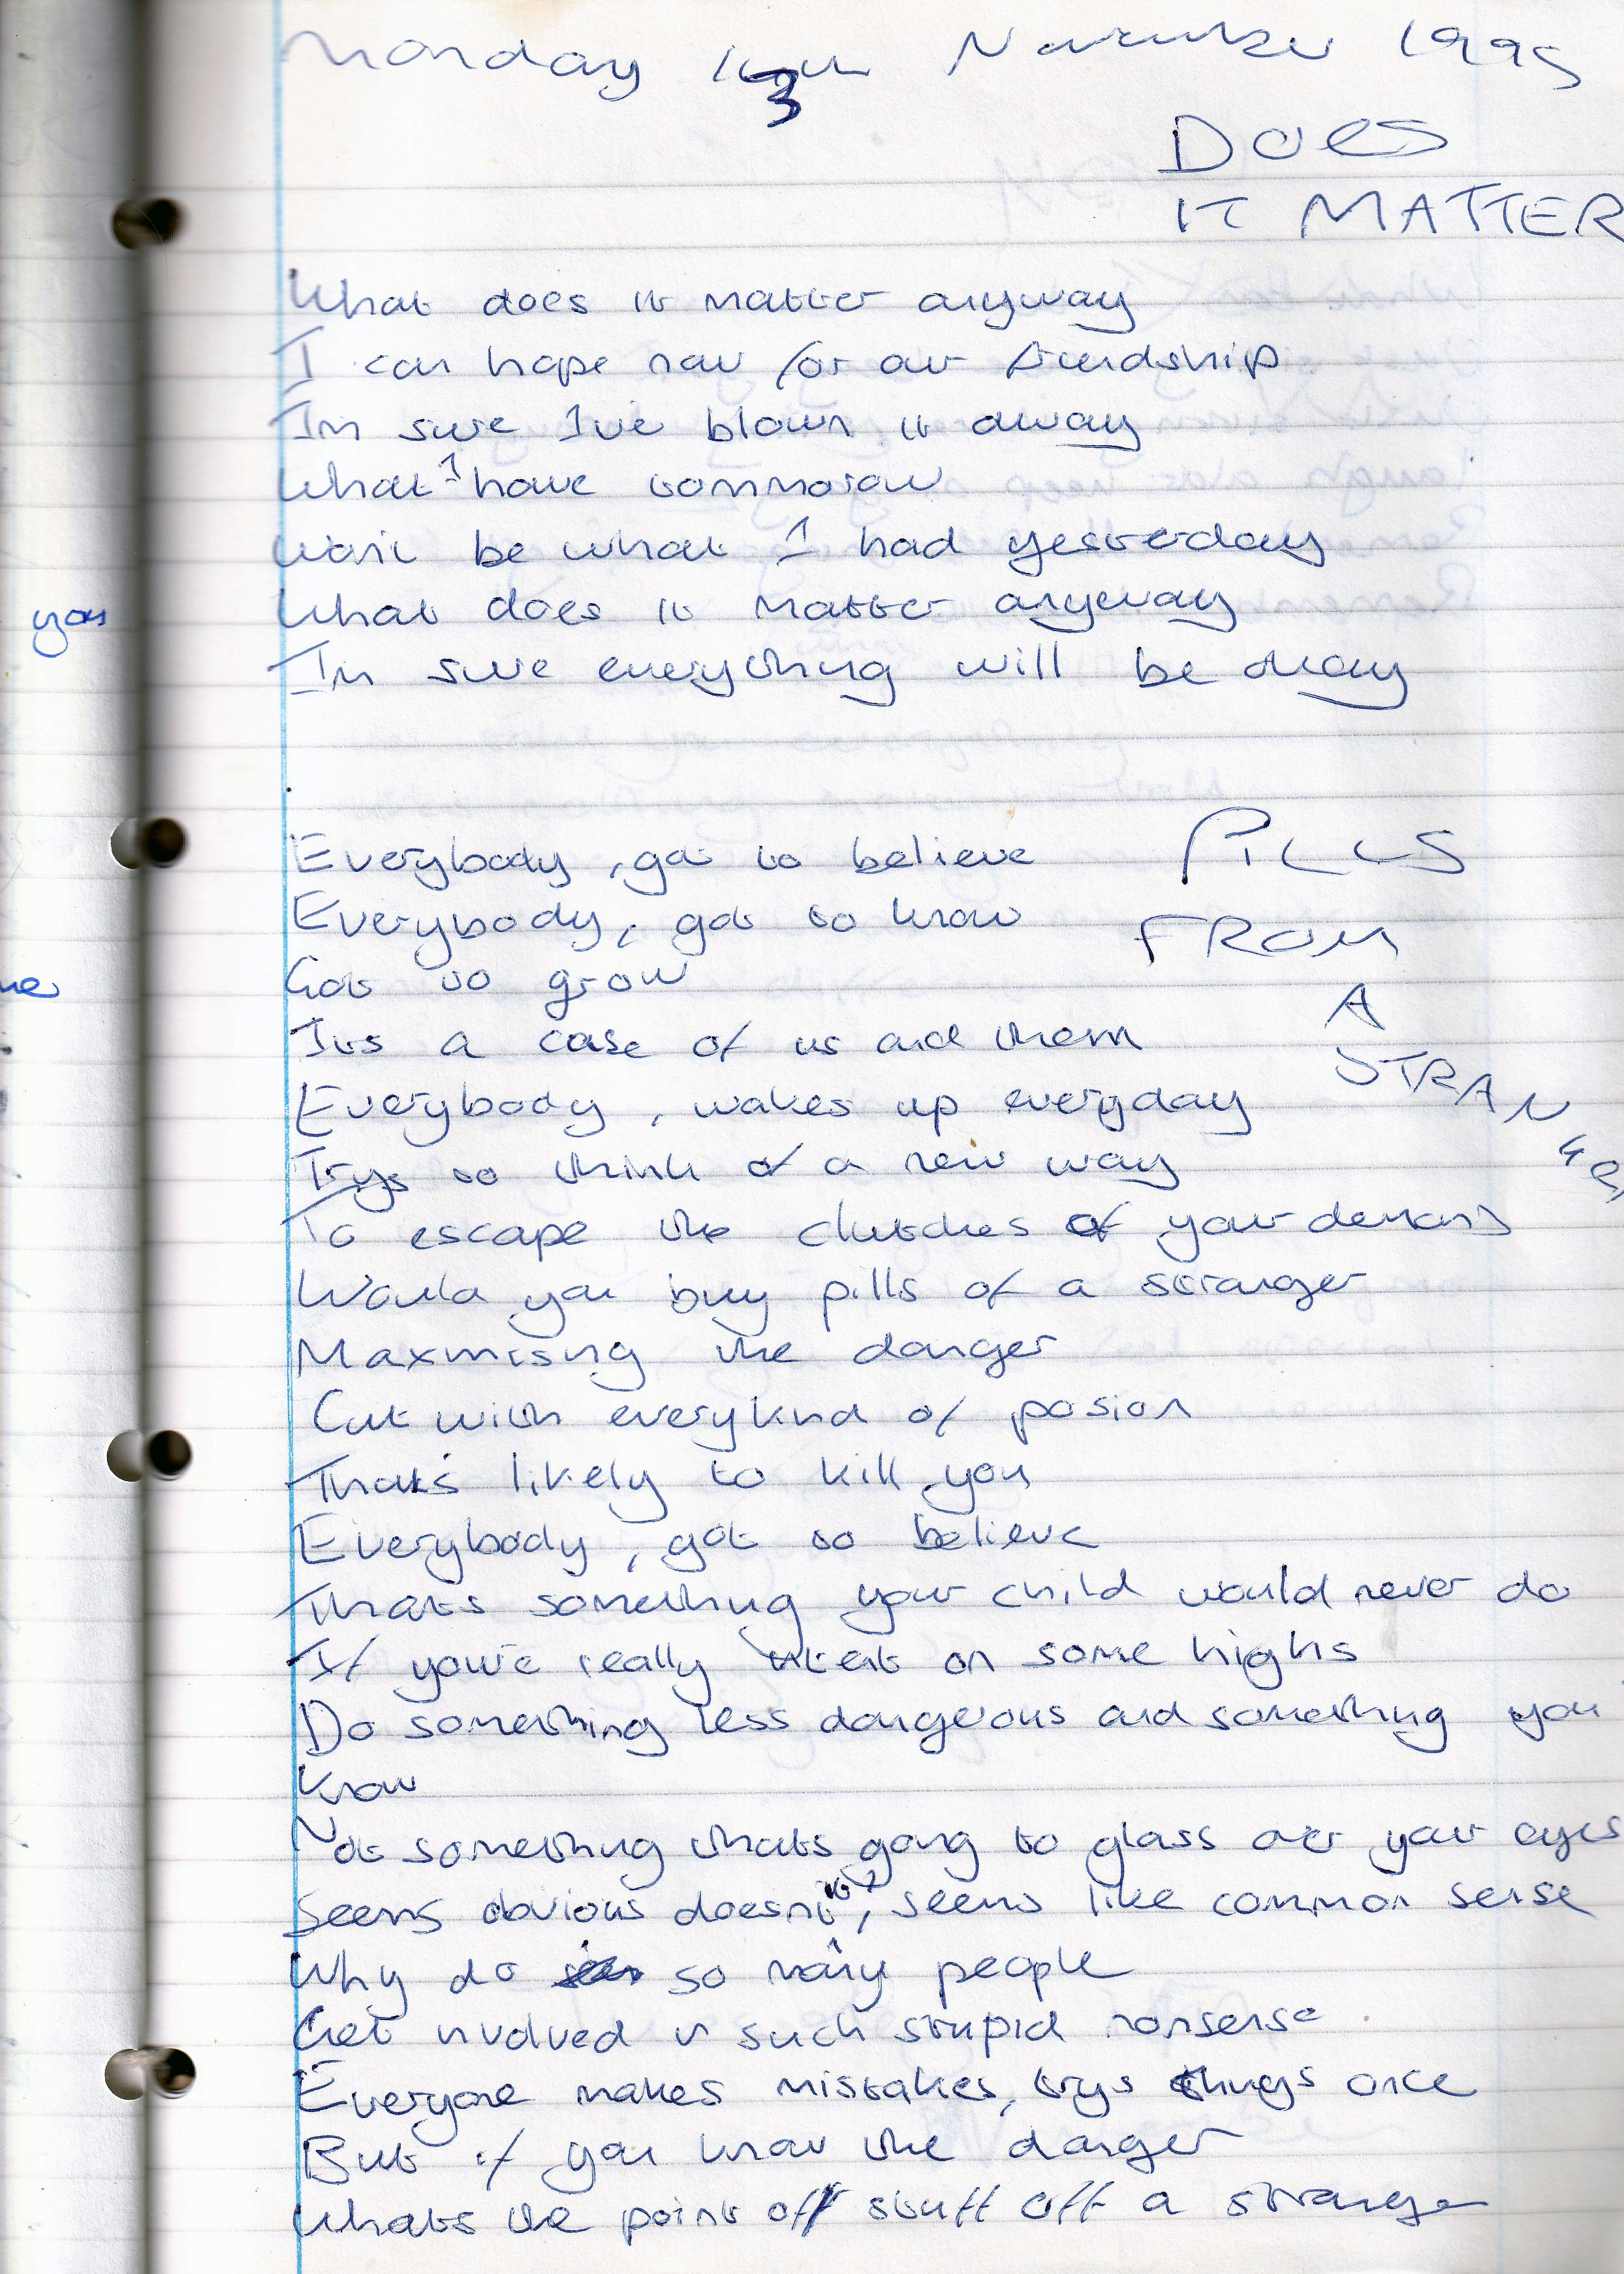 Monday 13th November 1995
DOES
IT MATTER
What does it matter anyway
I can hope now for our friendship
Im sure I've blown it away
What I have tommorow
Won't be what I had yesterday
What does it matter anyway
you
Im sure everything will be okay
Everybody, got to believe
PILLS
Everybody, got to know
FROM
Got to grow
A
Its a case of us and them
STRANGER
Everybody, wakes up everyday
Trys to think of a new way
To escape the clutches of your demons
Would you buy pills of a stranger
Maxmising the danger
Cut with everykind of posion
That's likely to kill you
Everybody, got to believe
Thats something your child would never do
If you're really intent on some highs
Do something less dangerous and something you
know
Not something thats going to glass over your eyes
Seems obvious doesn't it?, seems like common sense
Why do so many people
Get involved in such stupid nonsense
Everyone makes mistakes, trys things once
But if you know the danger
Whats the point off stuff off a stranger